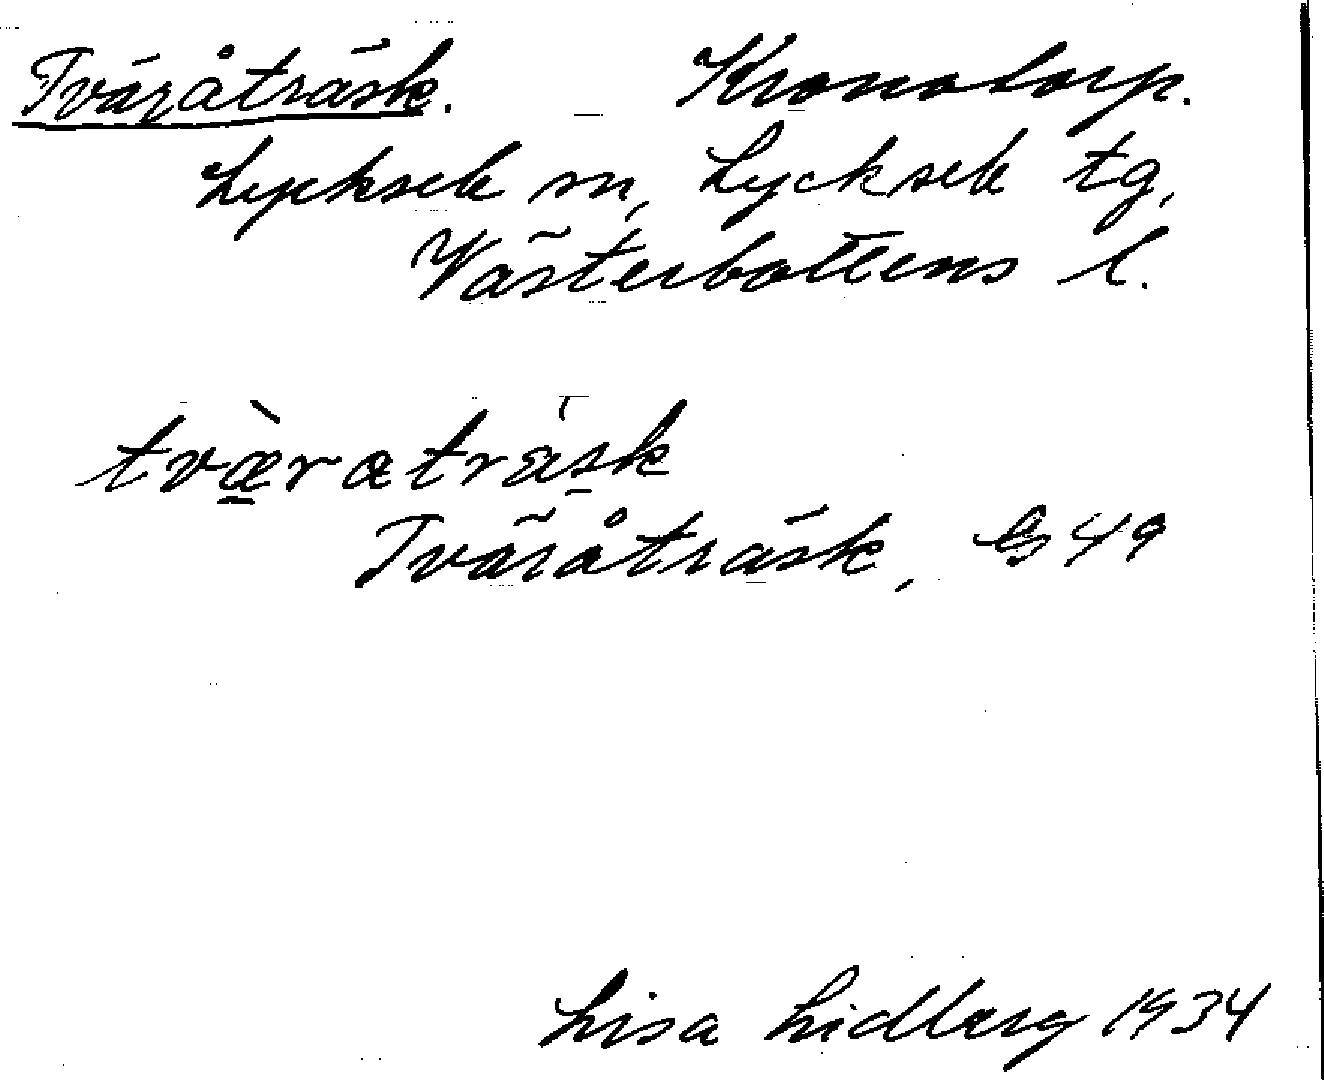 Tväråträsk. Kronotorp.
Lycksele sn, Lycksele tg,
Västerbottens l.
tvæ̀ræträ́sk
Tväråträsk, GS 49
Lisa Lidberg 1934